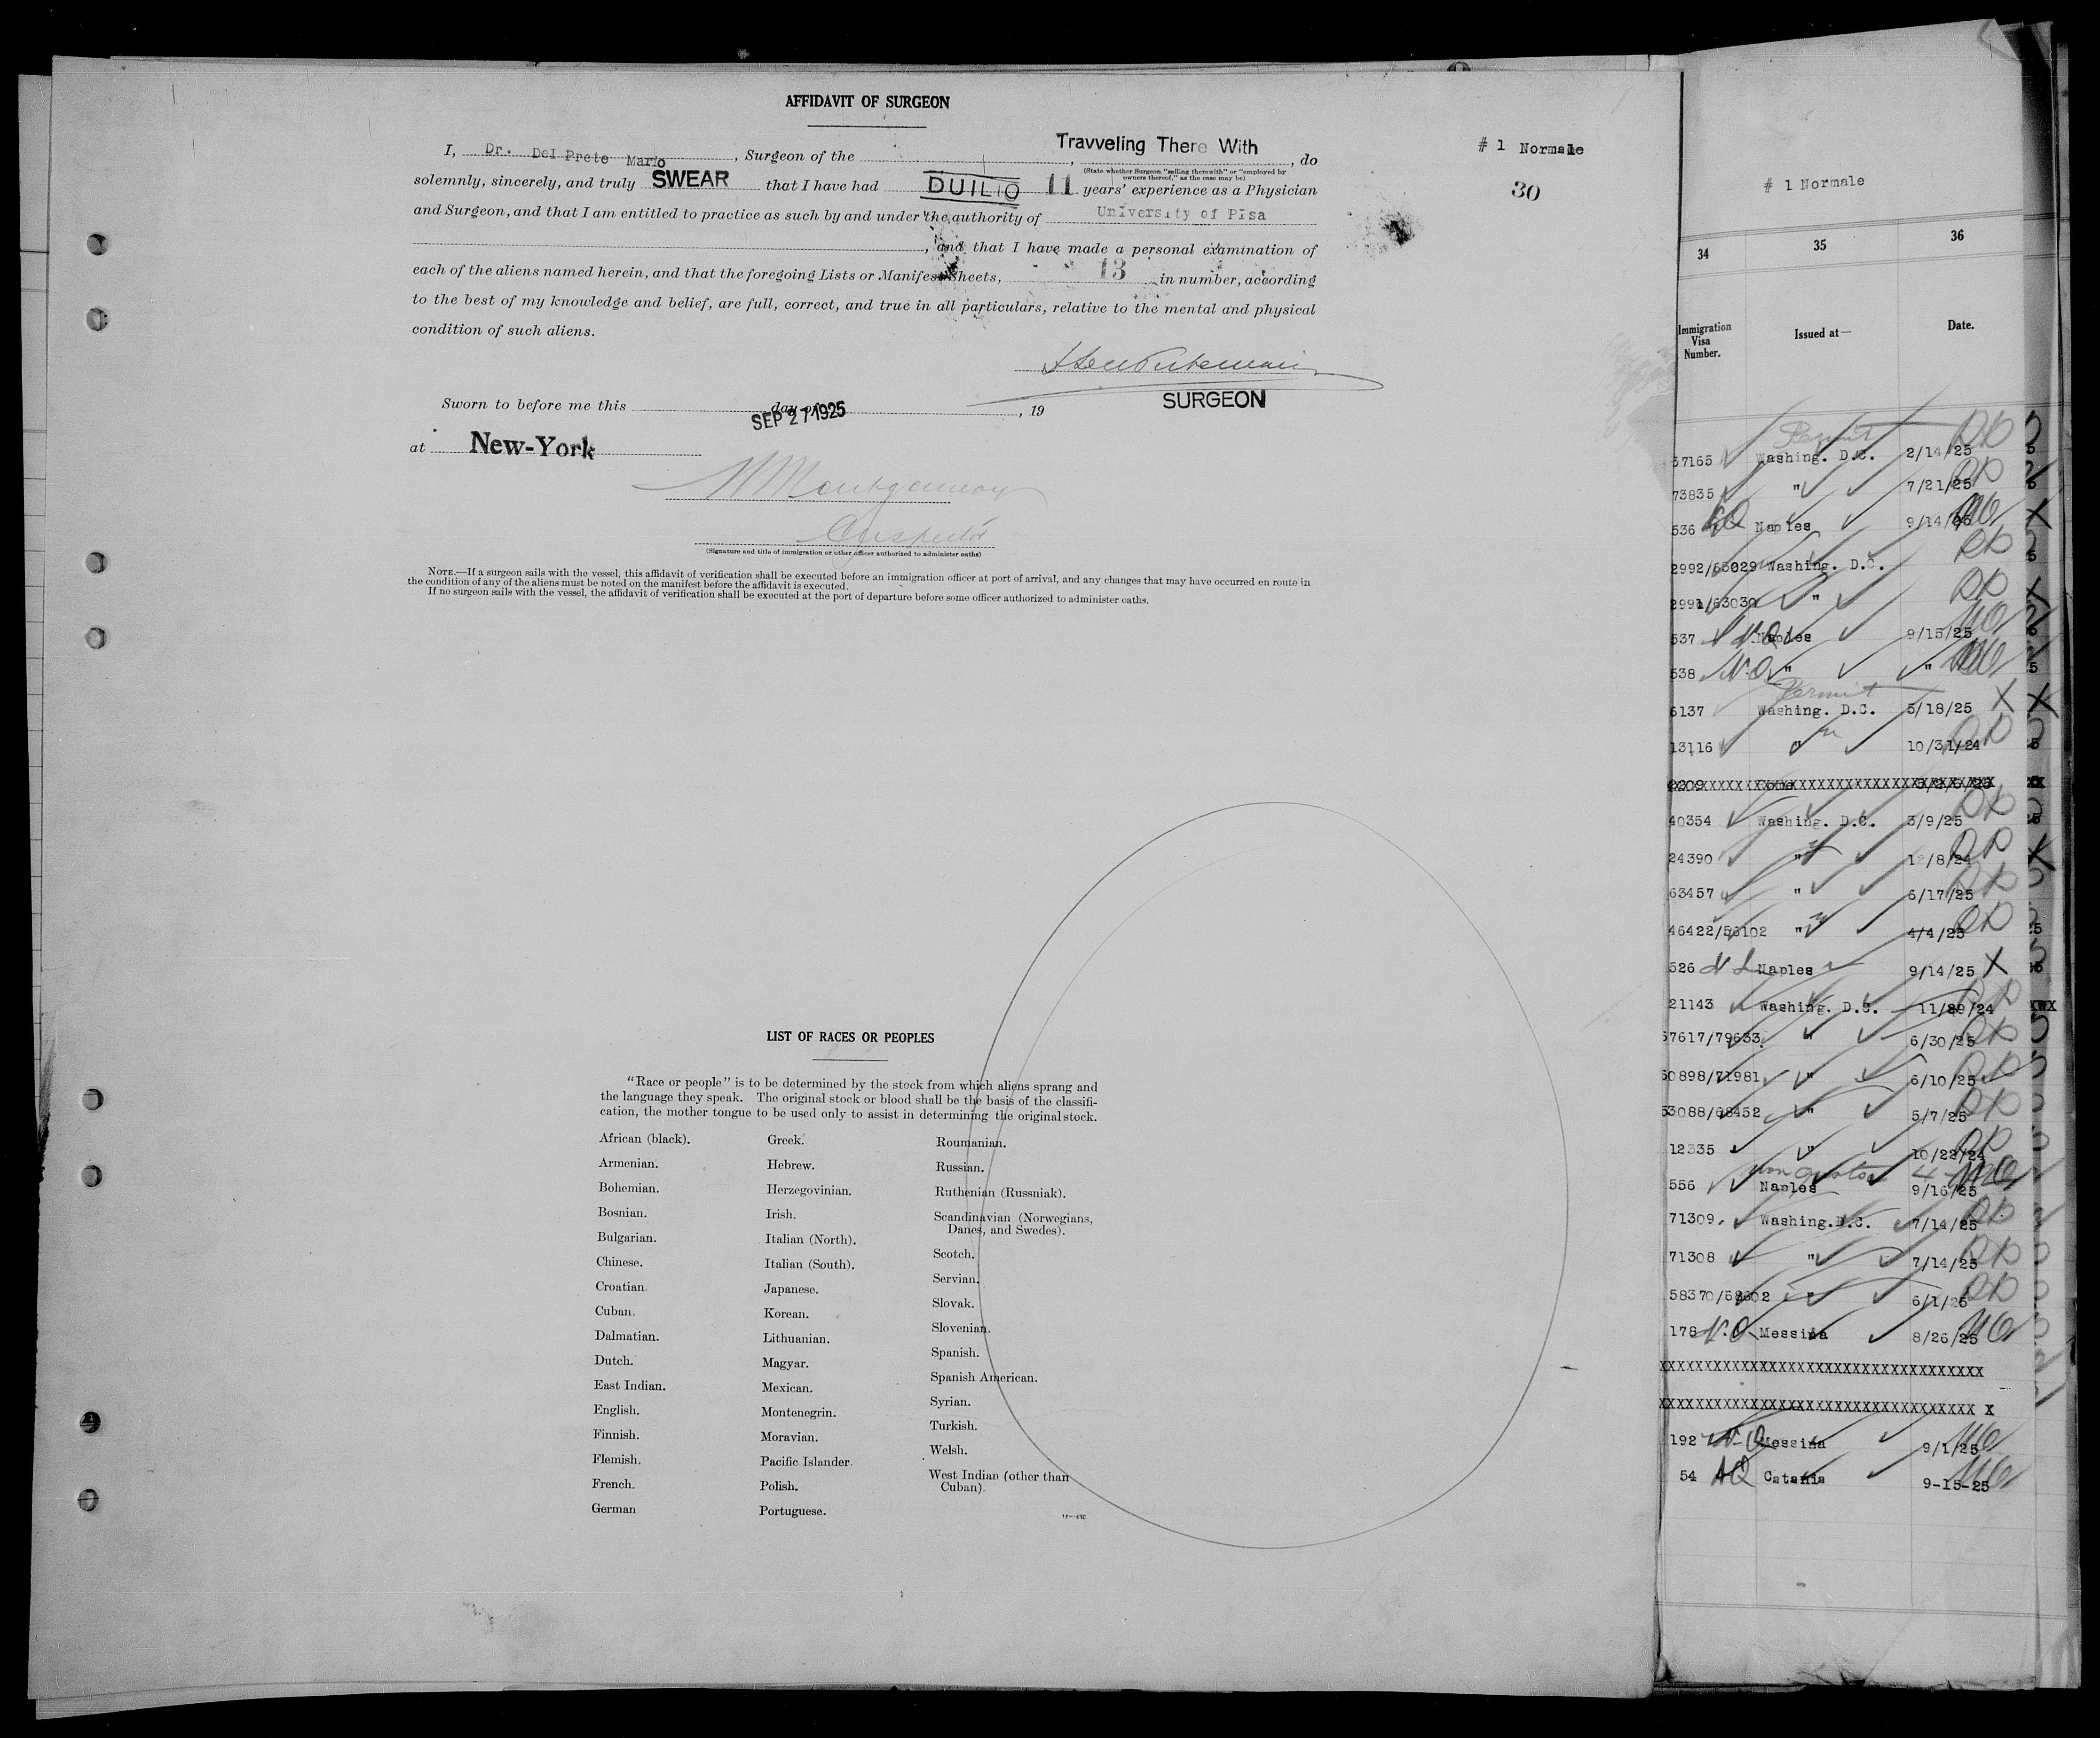 AFFIDAVIT OF SURGEON
I, Dr. Del Prete Mario, Surgeon of the , Travveling There With, do
(State whether Surgeon "sailing therewith" or "employed by owners thereof," as the case may be)
solemnly, sincerely, and truly SWEAR that I have had DUILIO 11 years' experience as a Physician
and Surgeon, and that I am entitled to practice as such by and under the authority of University of Pisa
, and that I have made a personal examination of
each of the aliens named herein, and that the foregoing Lists or Manifest Sheets, 13 in number, according
to the best of my knowledge and belief, are full, correct, and true in all particulars, relative to the mental and physical
condition of such aliens.
SURGEON
Sworn to before me this day of SEP 27 1925, 19
at New-York
Montgomery
(Signature and title of immigration or other officer authorized to administer oaths)
NOTE.—If a surgeon sails with the vessel, this affidavit of verification shall be executed before an immigration officer at port of arrival, and any changes that may have occurred en route in
the condition of any of the aliens must be noted on the manifest before the affidavit is executed.
If no surgeon sails with the vessel, the affidavit of verification shall be executed at the port of departure before some officer authorized to administer oaths.
# 1 Normale
30
LIST OF RACES OR PEOPLES
"Race or people" is to be determined by the stock from which aliens sprang and
the language they speak. The original stock or blood shall be the basis of the classifi-
cation, the mother tongue to be used only to assist in determining the original stock.
African (black).
Armenian.
Bohemian.
Bosnian.
Bulgarian.
Chinese.
Croatian.
Cuban.
Dalmatian.
Dutch.
East Indian.
English.
Finnish.
Flemish.
French.
German
Greek.
Hebrew.
Herzegovinian.
Irish.
Italian (North).
Italian (South).
Japanese.
Korean.
Lithuanian.
Magyar.
Mexican.
Montenegrin.
Moravian.
Pacific Islander.
Polish.
Portuguese.
Roumanian.
Russian.
Ruthenian (Russniak).
Scandinavian (Norwegians,
Danes, and Swedes).
Scotch.
Servian.
Slovak.
Slovenian.
Spanish.
Spanish American.
Syrian.
Turkish.
Welsh.
West Indian (other than
Cuban).
# 1 Normale
34 35 36
Immigration Visa Number. Issued at— Date.
Permit
37165 Washing. D.C. 2/14/25
73835 " 7/21/25
536 Naples 9/14/25
2992/63029 Washing. D.C.
2991/63030 "
537 Naples 9/15/25
538 N.Q. " "
Permit
6137 Washing. D.C. 5/18/25 X
13116 " 10/31/24
40354 Washing. D.C. 3/9/25
24390 " 12/8/24
63457 " 6/17/25
46422/56102 " 4/4/25
526 Naples 9/14/25 X
21143 Washing. D.C. 11/29/24
57617/79633 " 6/30/25
50898/71981 " 6/10/25
53088/68452 " 5/7/25
12335 " 10/22/24
non quota
556 Naples 9/16/25
71309 Washing.D.C. 7/14/25
71308 " 7/14/25
58370/ " 6/1/25
178 N.Q. Messina 8/26/25
XXXXXXXXXXXXXXXXXXXXXXXXXXXXXXXXXXX
XXXXXXXXXXXXXXXXXXXXXXXXXXXXXXXXXX X
192 N-Q Messina 9/1/25
54 Catania 9-15-25